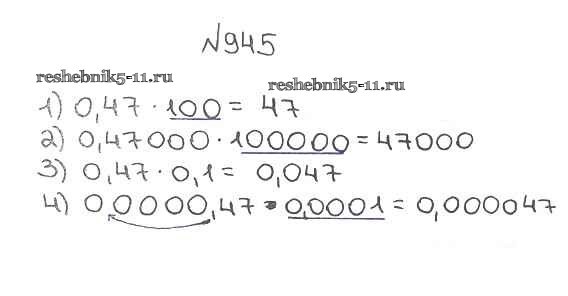 №945
reshebnik5-11.ru
reshebnik5-11.ru
1) 0,47 · 100 = 47
2) 0,47000 · 100000 = 47000
3) 0,47 · 0,1 = 0,047
4) 00000,47 · 0,0001 = 0,000047